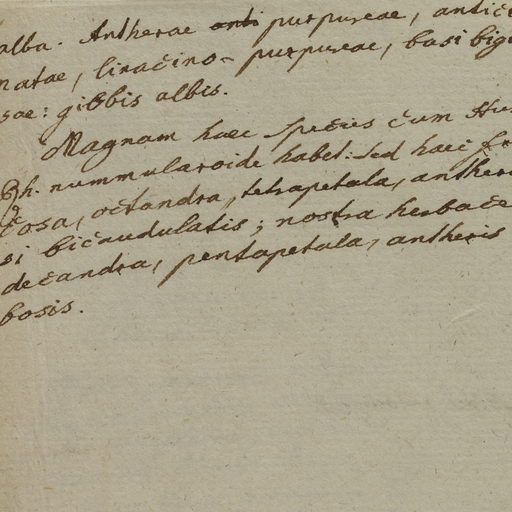 alba. Antherae anti purpureae, antice
natae, liracino-purpureae, basi bigi
sae: gibbis albis.
Magnam haec species cum Hu
Bh. nummularoide habet: sed haec fr
cosa, octandra, tetrapetala, anthera
si bicnudulatis; nostra herbace
decandra, pentapetala, antheris
bosis.